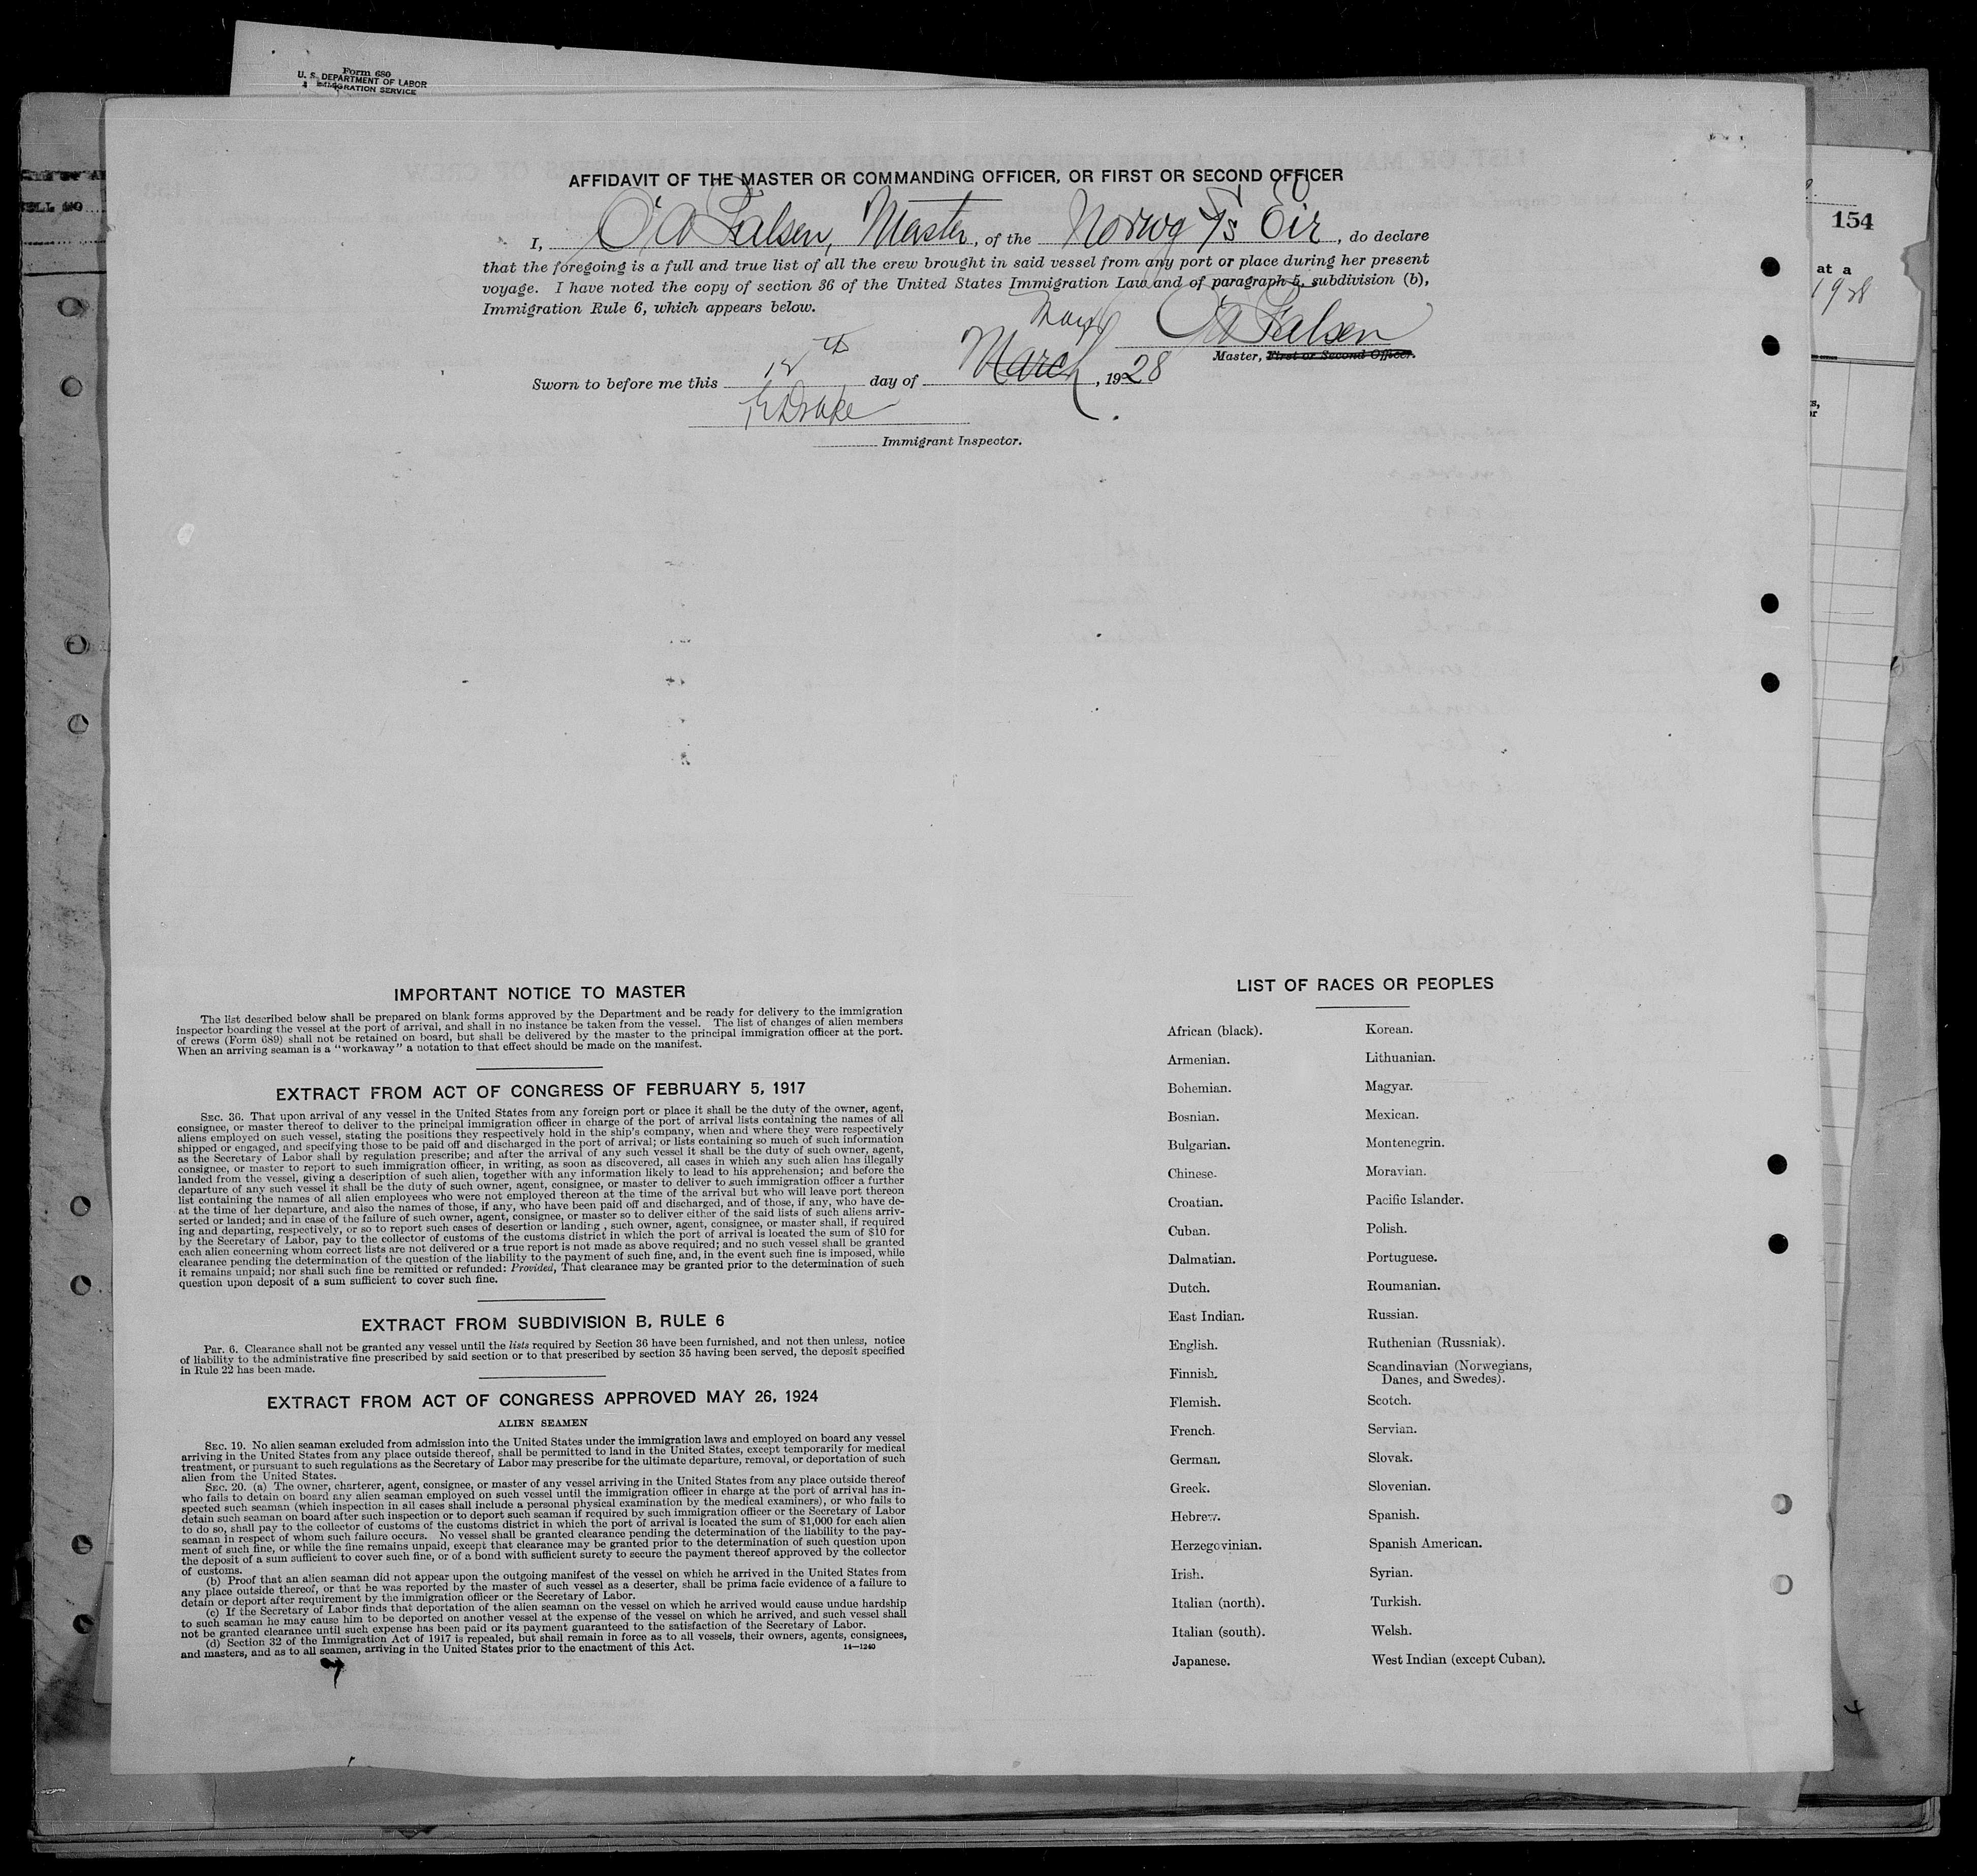 Form 680
U. S. DEPARTMENT OF LABOR
IMMIGRATION SERVICE
154
at a
1928
AFFIDAVIT OF THE MASTER OR COMMANDING OFFICER, OR FIRST OR SECOND OFFICER
I, O A Falsen, Master, of the Norwg T/s Eir, do declare
that the foregoing is a full and true list of all the crew brought in said vessel from any port or place during her present
voyage. I have noted the copy of section 36 of the United States Immigration Law and of paragraph 5, subdivision (b),
Immigration Rule 6, which appears below.
O A Falsen
Master, First or Second Officer.
May
Sworn to before me this 12th day of March, 1928
Drake
Immigrant Inspector.
IMPORTANT NOTICE TO MASTER
The list described below shall be prepared on blank forms approved by the Department and be ready for delivery to the immigration
inspector boarding the vessel at the port of arrival, and shall in no instance be taken from the vessel. The list of changes of alien members
of crews (Form 689) shall not be retained on board, but shall be delivered by the master to the principal immigration officer at the port.
When an arriving seaman is a "workaway" a notation to that effect should be made on the manifest.
EXTRACT FROM ACT OF CONGRESS OF FEBRUARY 5, 1917
SEC. 36. That upon arrival of any vessel in the United States from any foreign port or place it shall be the duty of the owner, agent,
consignee, or master thereof to deliver to the principal immigration officer in charge of the port of arrival lists containing the names of all
aliens employed on such vessel, stating the positions they respectively hold in the ship's company, when and where they were respectively
shipped or engaged, and specifying those to be paid off and discharged in the port of arrival; or lists containing so much of such information
as the Secretary of Labor shall by regulation prescribe; and after the arrival of any such vessel it shall be the duty of such owner, agent,
consignee, or master to report to such immigration officer, in writing, as soon as discovered, all cases in which any such alien has illegally
landed from the vessel, giving a description of such alien, together with any information likely to lead to his apprehension; and before the
departure of any such vessel it shall be the duty of such owner, agent, consignee, or master to deliver to such immigration officer a further
list containing the names of all alien employees who were not employed thereon at the time of the arrival but who will leave port thereon
at the time of her departure, and also the names of those, if any, who have been paid off and discharged, and of those, if any, who have de-
serted or landed; and in case of the failure of such owner, agent, consignee, or master so to deliver either of the said lists of such aliens arriv-
ing and departing, respectively, or so to report such cases of desertion or landing , such owner, agent, consignee, or master shall, if required
by the Secretary of Labor, pay to the collector of customs of the customs district in which the port of arrival is located the sum of $10 for
each alien concerning whom correct lists are not delivered or a true report is not made as above required; and no such vessel shall be granted
clearance pending the determination of the question of the liability to the payment of such fine, and, in the event such fine is imposed, while
it remains unpaid; nor shall such fine be remitted or refunded: Provided, That clearance may be granted prior to the determination of such
question upon deposit of a sum sufficient to cover such fine.
EXTRACT FROM SUBDIVISION B, RULE 6
Par. 6. Clearance shall not be granted any vessel until the lists required by Section 36 have been furnished, and not then unless, notice
of liability to the administrative fine prescribed by said section or to that prescribed by section 35 having been served, the deposit specified
in Rule 22 has been made.
EXTRACT FROM ACT OF CONGRESS APPROVED MAY 26, 1924
ALIEN SEAMEN
SEC. 19. No alien seaman excluded from admission into the United States under the immigration laws and employed on board any vessel
arriving in the United States from any place outside thereof, shall be permitted to land in the United States, except temporarily for medical
treatment, or pursuant to such regulations as the Secretary of Labor may prescribe for the ultimate departure, removal, or deportation of such
alien from the United States.
SEC. 20. (a) The owner, charterer, agent, consignee, or master of any vessel arriving in the United States from any place outside thereof
who fails to detain on board any alien seaman employed on such vessel until the immigration officer in charge at the port of arrival has in-
spected such seaman (which inspection in all cases shall include a personal physical examination by the medical examiners), or who fails to
detain such seaman on board after such inspection or to deport such seaman if required by such immigration officer or the Secretary of Labor
to do so, shall pay to the collector of customs of the customs district in which the port of arrival is located the sum of $1,000 for each alien
seaman in respect of whom such failure occurs. No vessel shall be granted clearance pending the determination of the liability to the pay-
ment of such fine, or while the fine remains unpaid, except that clearance may be granted prior to the determination of such question upon
the deposit of a sum sufficient to cover such fine, or of a bond with sufficient surety to secure the payment thereof approved by the collector
of customs.
(b) Proof that an alien seaman did not appear upon the outgoing manifest of the vessel on which he arrived in the United States from
any place outside thereof, or that he was reported by the master of such vessel as a deserter, shall be prima facie evidence of a failure to
detain or deport after requirement by the immigration officer or the Secretary of Labor.
(c) If the Secretary of Labor finds that deportation of the alien seaman on the vessel on which he arrived would cause undue hardship
to such seaman he may cause him to be deported on another vessel at the expense of the vessel on which he arrived, and such vessel shall
not be granted clearance until such expense has been paid or its payment guaranteed to the satisfaction of the Secretary of Labor.
(d) Section 32 of the Immigration Act of 1917 is repealed, but shall remain in force as to all vessels, their owners, agents, consignees,
and masters, and as to all seamen, arriving in the United States prior to the enactment of this Act. 14—1240
LIST OF RACES OR PEOPLES
African (black).
Armenian.
Bohemian.
Bosnian.
Bulgarian.
Chinese.
Croatian.
Cuban.
Dalmatian.
Dutch.
East Indian.
English.
Finnish.
Flemish.
French.
German.
Greek.
Hebrew.
Herzegovinian.
Irish.
Italian (north).
Italian (south).
Japanese.
Korean.
Lithuanian.
Magyar.
Mexican.
Montenegrin.
Moravian.
Pacific Islander.
Polish.
Portuguese.
Roumanian.
Russian.
Ruthenian (Russniak).
Scandinavian (Norwegians,
Danes, and Swedes).
Scotch.
Servian.
Slovak.
Slovenian.
Spanish.
Spanish American.
Syrian.
Turkish.
Welsh.
West Indian (except Cuban).